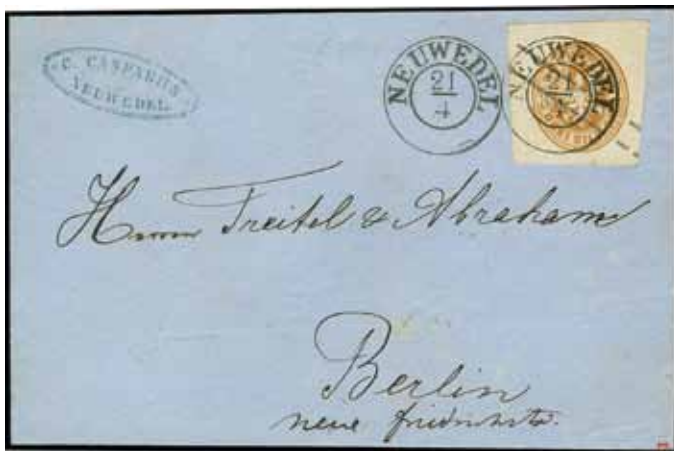 C. CASPARIUS
NEUWEDEL
NEUWEDEL
21
4
NEUWEDEL
21
4
Herrn Treitel & Abraham
Berlin
neue Friedrichstr.